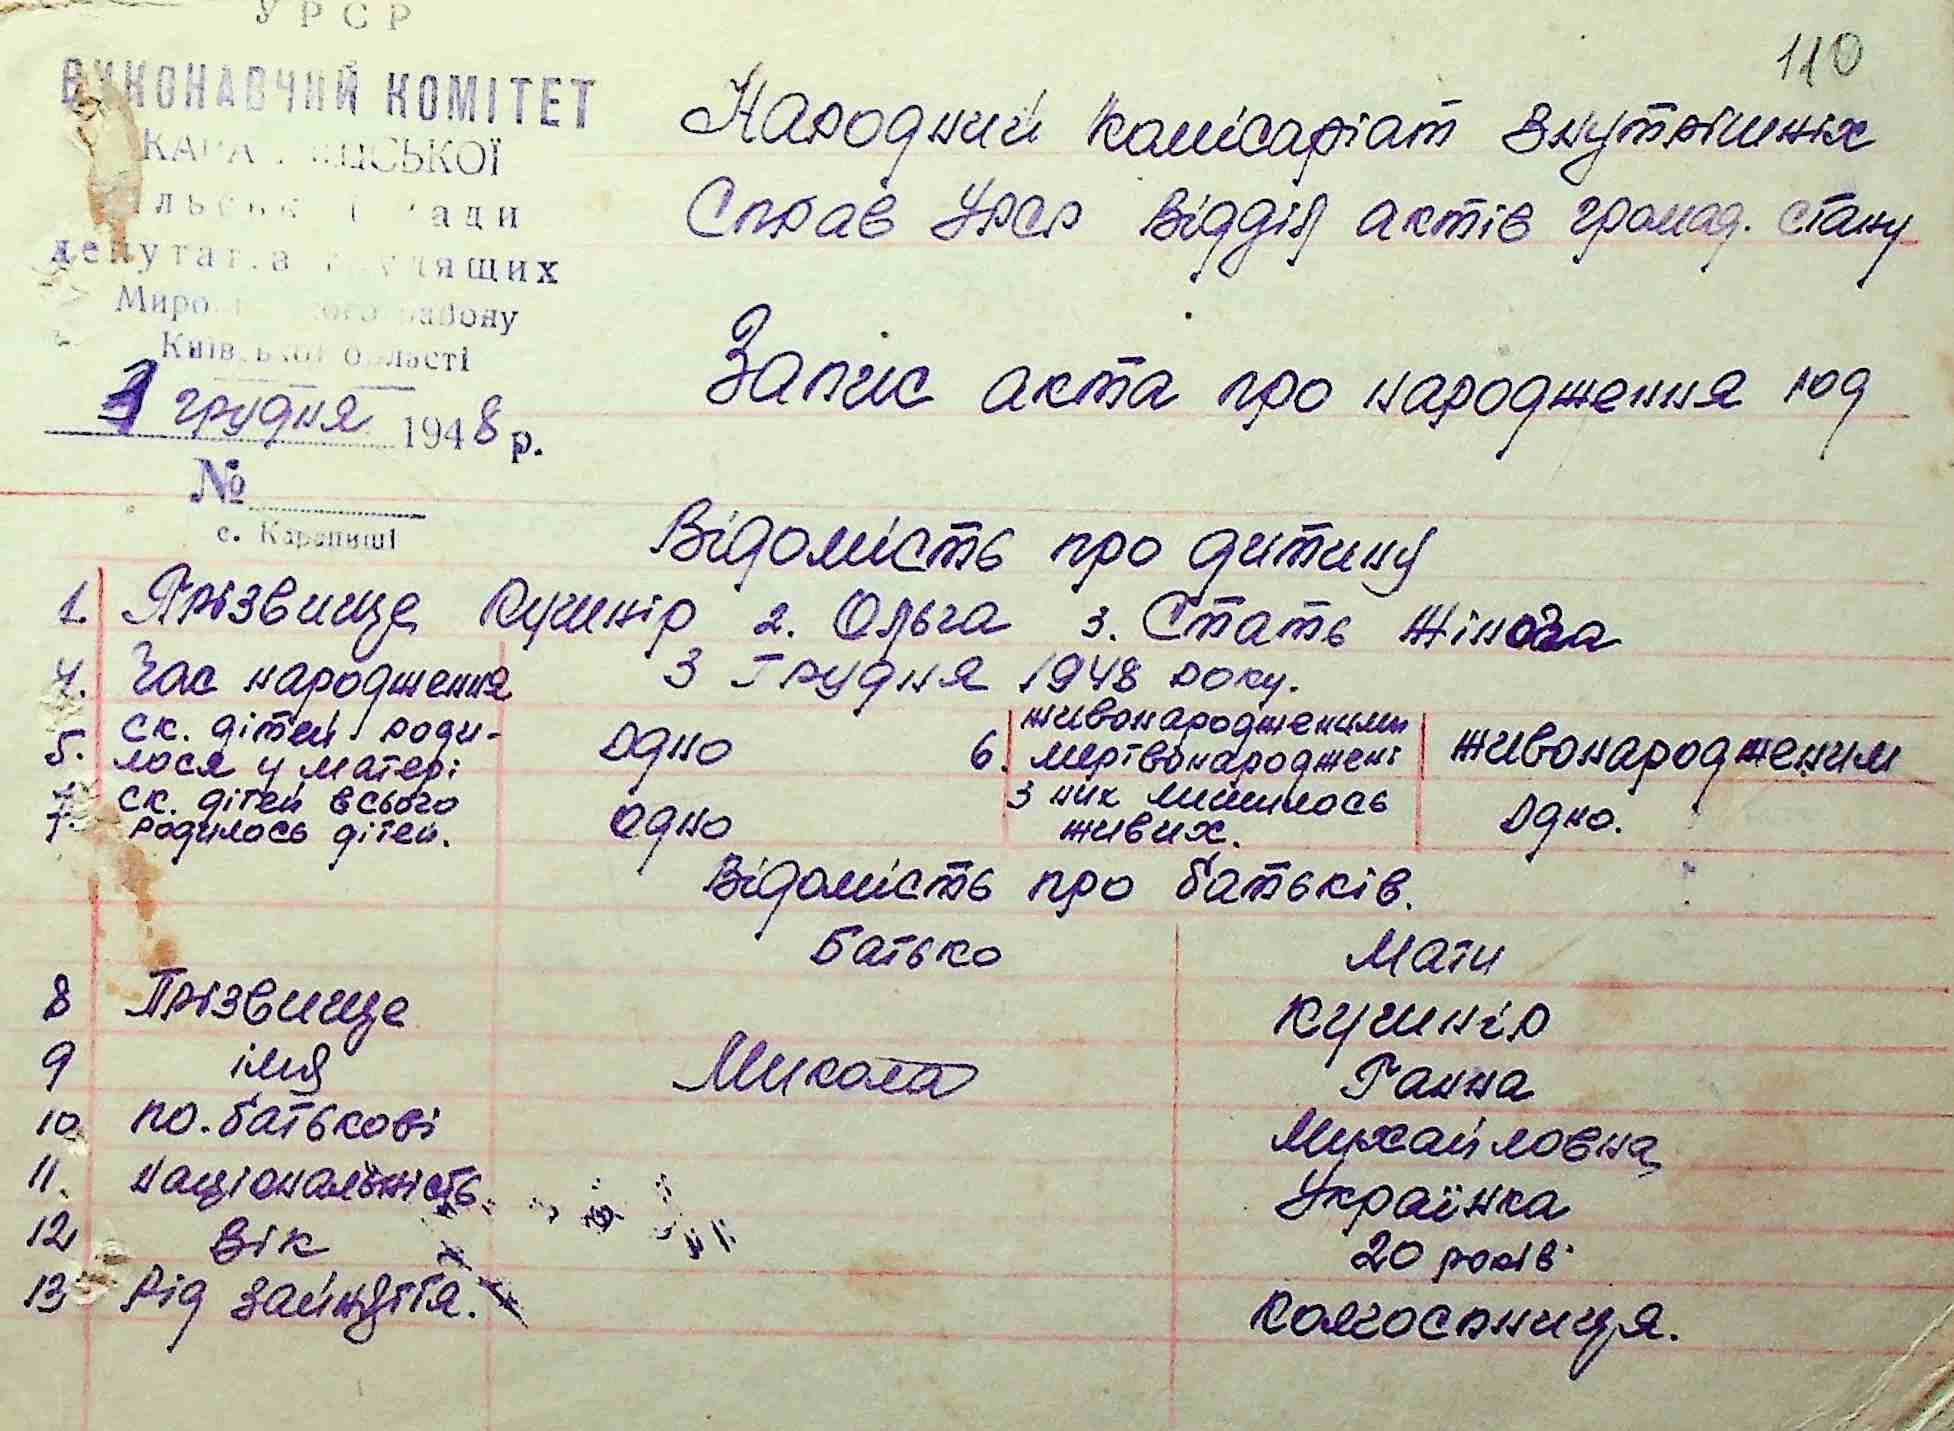 УРСР
110
ВИКОНАВЧИЙ КОМІТЕТ
депутатів трудящих
Миро району
Київської області
3 грудня 1948 р.
№
с. Карапиші
Народний комісаріат Внутрішніх
Справ УРСР Відділ актів громад. стану
Запис акта про народження
Відомість про дитину
1. Прізвище Кушнір 2. Ольга 3. Стать жіноча
4. Час народження 3 Грудня 1948 року.
5. ск. дітей роди-
лося у матері одно 6. живонародженими мертвонароджені живонародженим
7. ск. дітей всього
родилось дітей. одно з них лишилось живих. Одно.
Відомість про батьків.
Батько Мати
8 Прізвище Кушнір
9 імя Микола Ганна
10 по.батькові Михайловна
11. національність Українка
12 Вік 20 років
13 Рід зайняття. колгоспниця.